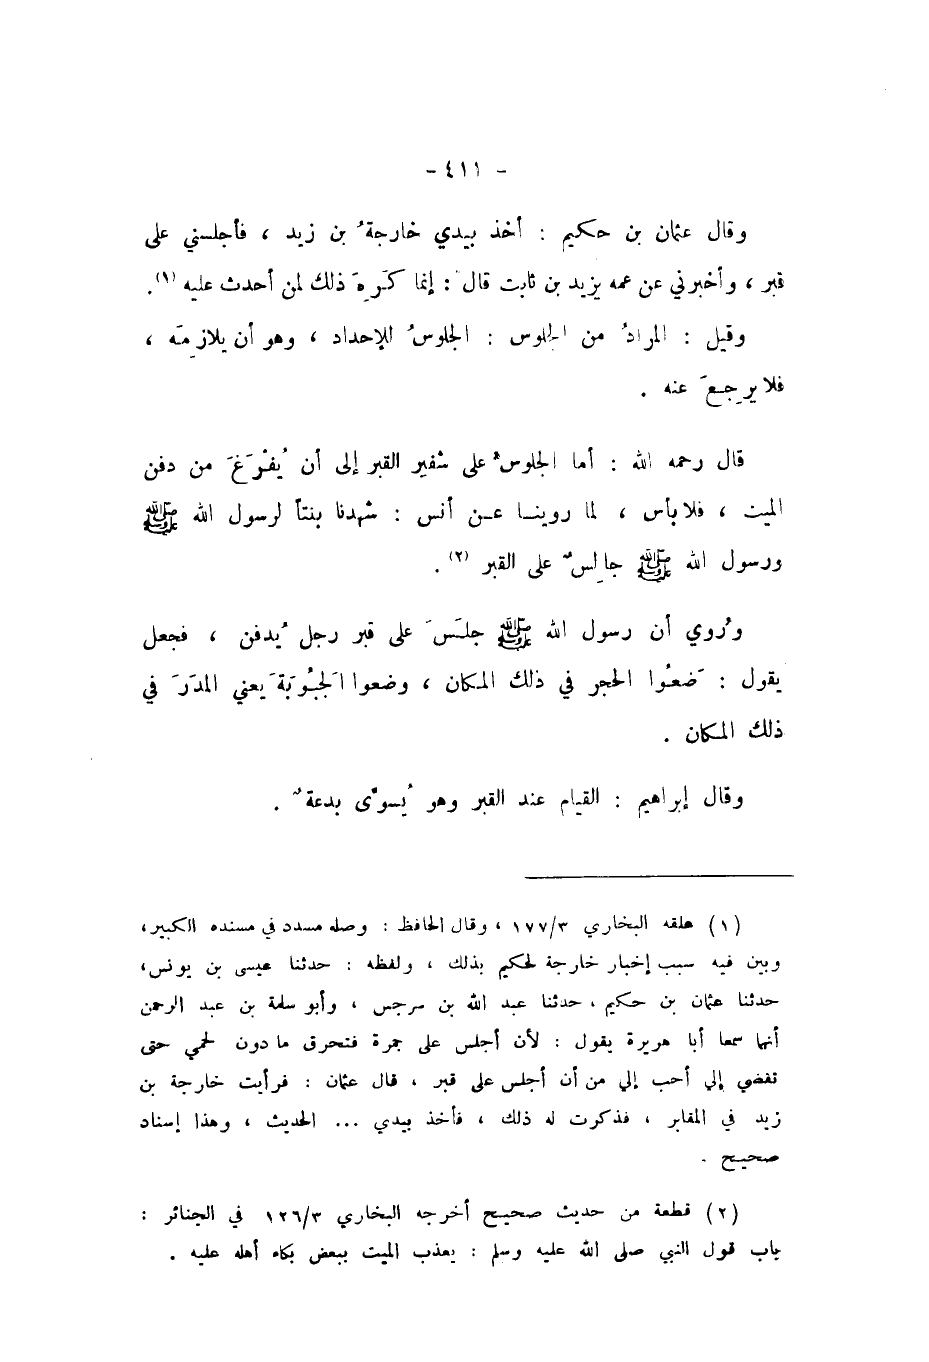 - ٤١١ -
وقال عثمان بن حكيم : أخذ بيدي خارجةُ بن زيد ، فأجلسني على
قبر ، وأخبرني عن عمه يزيد بن ثابت قال : إنما كَرِهَ ذلك لمن أحدث عليه (١).
وقيل : المرادُ من الجلوس : الجلوسُ للإحداد ، وهو أن يلازِمَه ،
فلا يرجِعَ عنه .
قال رحمه الله : أما الجلوسُ على شفير القبر إلى أن يُفْرَغَ من دفن
الميت ، فلا بأس ، لما روينا عن أنس : شهدنا بنتاً لرسول الله ﷺ
ورسول الله ﷺ جالِسٌ على القبر (٢) .
ورُوي أن رسول الله ﷺ جلَسَ على قبر رجل يُدفن ، فجعل
يقول : ضَعُوا الحجر في ذلك المكان ، وضعوا الجَبُوبَةَ يعني المدَرَ في
ذلك المكان .
وقال إبراهيم : القيام عند القبر وهو يُسوّى بدعةٌ .
(١) علقه البخاري ١٧٧/٣ ، وقال الحافظ : وصله مسدد في مسنده الكبير،
وبين فيه سبب إخبار خارجة لحكيم بذلك ، ولفظه : حدثنا عيسى بن يونس،
حدثنا عثمان بن حكيم ، حدثنا عبد الله بن سرجس ، وأبو سلمة بن عبد الرحمن
أنهما سمعا أبا هريرة يقول : لأن أجلس على جمرة فتحرق ما دون لحمي حتى
تفضي إلي أحب إلي من أن أجلس على قبر ، قال عثمان : فرأيت خارجة بن
زيد في المقابر ، فذكرت له ذلك ، فأخذ بيدي ... الحديث ، وهذا إسناد
صحيح .
(٢) قطعة من حديث صحيح أخرجه البخاري ١٢٦/٣ في الجنائز :
باب قول النبي صلى الله عليه وسلم : يعذب الميت ببعض بكاء أهله عليه .